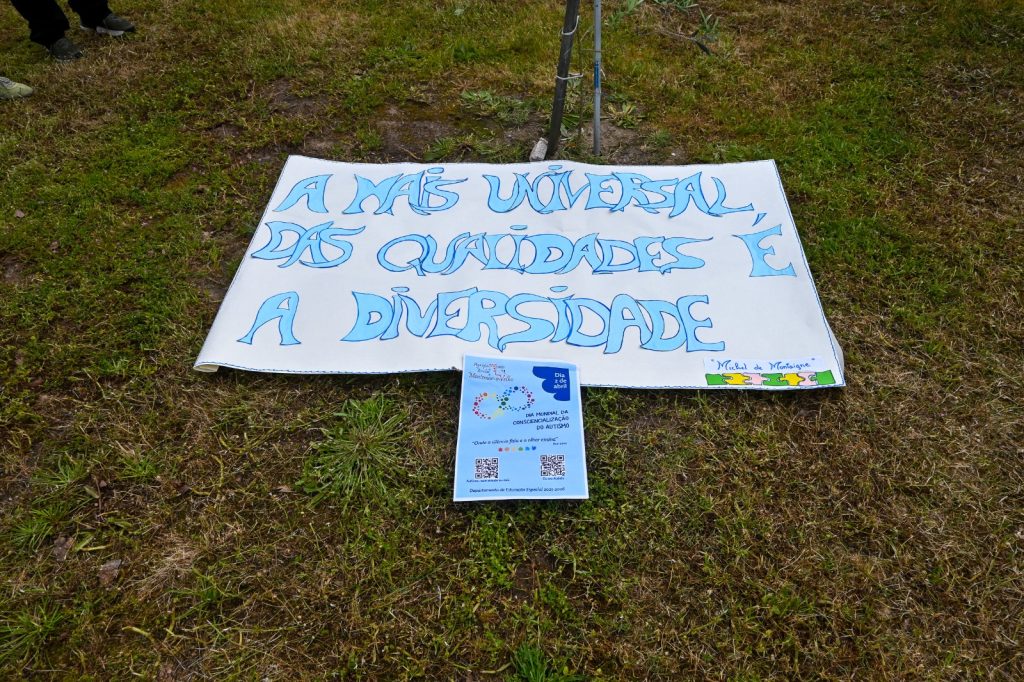 A MAIS UNIVERSAL,
DAS QUALIDADES É
A DIVERSIDADE
Michel de Montaigne
Dia
2 de
abril
DIA MUNDIAL DA
CONSCIENCIALIZAÇÃO
DO AUTISMO
"Onde o silêncio fala e o olhar ensina"
Departamento de Educação Especial 2025-2026